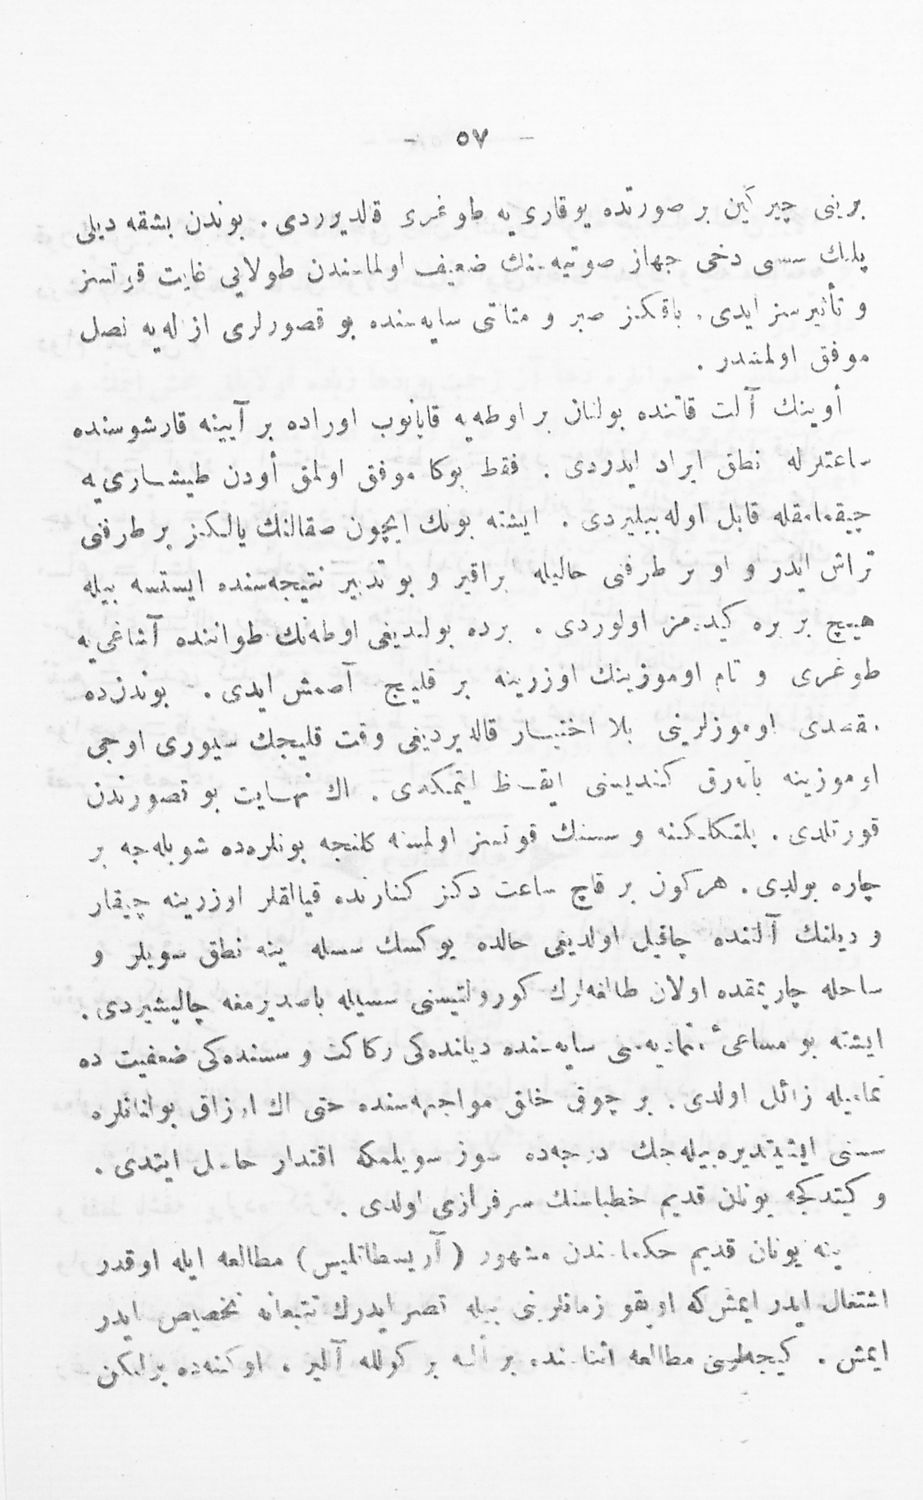 — ٥٧ —
برینی چیركین بر صورتده یوقاری‌یه طوغری قالدیرردی. بوندن بشقه دیلی
پلتك سسی دخی جهاز صوتیه‌سنك ضعیف اولماسندن طولایی غایت قوتسز
و تأثیرسز ایدی. باقكز صبر و متانتی سایه‌سنده بو قصورلری ازاله‌یه نصل
موفق اولمشدر.
أوینك آلت قاتنده بولنان بر اوطه‌یه قاپانوب اوراده بر آیینه قارشوسنده
ساعتلرله نطق ایراد ایدردی. فقط بوكا موفق اولمق أودن طیشـاری‌یه
چیقمامقله قابل اوله‌بیلیردی. ایشته بونك ایچون صقالنك یالـكز بر طرفنی
تراش ایدر و او بر طرفنی حالیله براقیر و بو تدبیر نتیجه‌سنده ایستسه بیله
هیـچ بر یره كیده‌مز اولوردی. برده بولندیغی اوطه‌نك طواننده آشاغی‌یه
طوغری و تام اوموزینك اوزرینه بر قلیـج آصمش ایدی. بوندزده
مقصدی اوموزلرینی بلا اختیـار قالدیردیغی وقت قلیجك سیوری اوجی
اوموزینه باته‌رق كندیسنی ایقـاظ ایتمكدی. اك نهـایت بو قصورندن
قورتلدی. پلتكلـكنه و سسنك قوتسز اولمسنه كلنجه بونلره‌ده شویله‌جه بر
چاره بولدی. هركون بر قاچ ساعت دكز كنارنده قیالقلر اوزرینه چیقار
و دیلنك آلتنده چاقیل اولدیغی حالده یوكسك سسله ینه نطق سویلر و
ساحله چارپمقده اولان طالغه‌لرك كورولتیسنی سسیله باصدیرمغه چالیشیردی.
ایشته بو مساعیٔ متمادیه‌سی سایه‌سنده دیلنده‌كی ركاكت و سسنده‌كی ضعفیت ده
تمامیله زائل اولدی. بر چوق خلق مواجهه‌سنده حتی اك اوزاق بولنانلره
سسنی ایشیتدیره‌بیله‌جك درجه‌ده سوز سویلمكه اقتدار حاصل ایتدی.
و كیتدكجه یونان قدیم خطباسنك سرفرازی اولدی.
ینه یونان قدیم حكماسندن مشهور (آریسطاطلیس) مطالعه ایله اوقدر
اشتغال ایدر ایمش‌كه اویقو زمانلرینی بیله قصر ایدرك تتبعاته تخصیص ایدر
ایمش. كیجه‌لین مطالعه اثناسنده بر النه بر كولله آلیر. اوكنه‌ده بر لكن